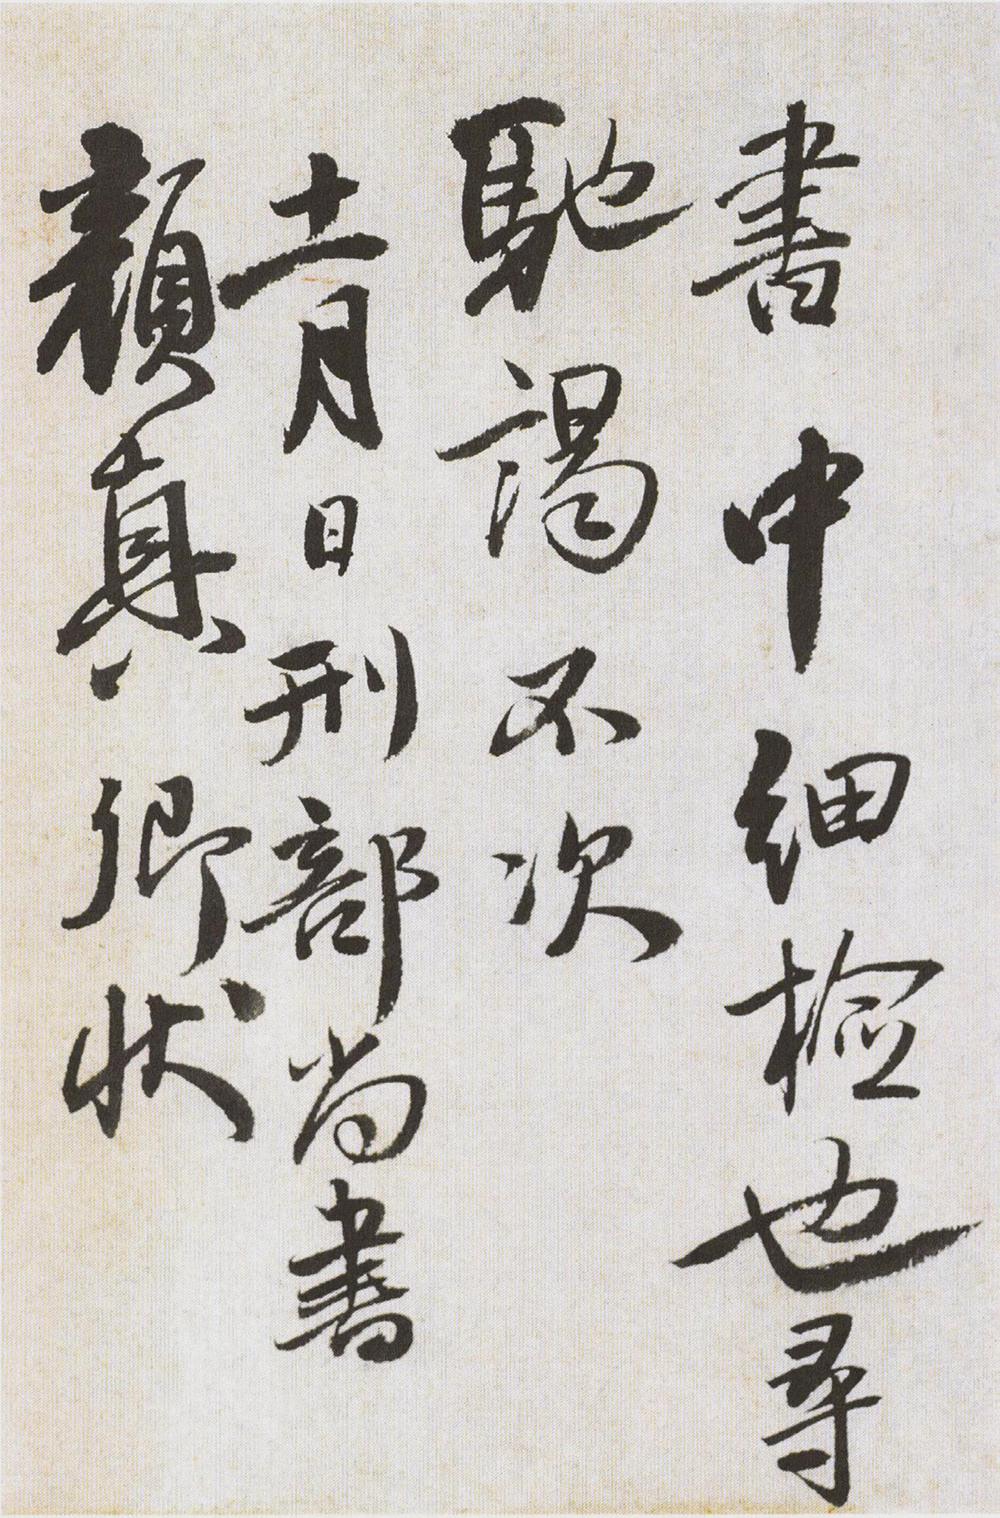 書中細檢也尋
馳謁不次
十一月日刑部尚書
顏真卿状